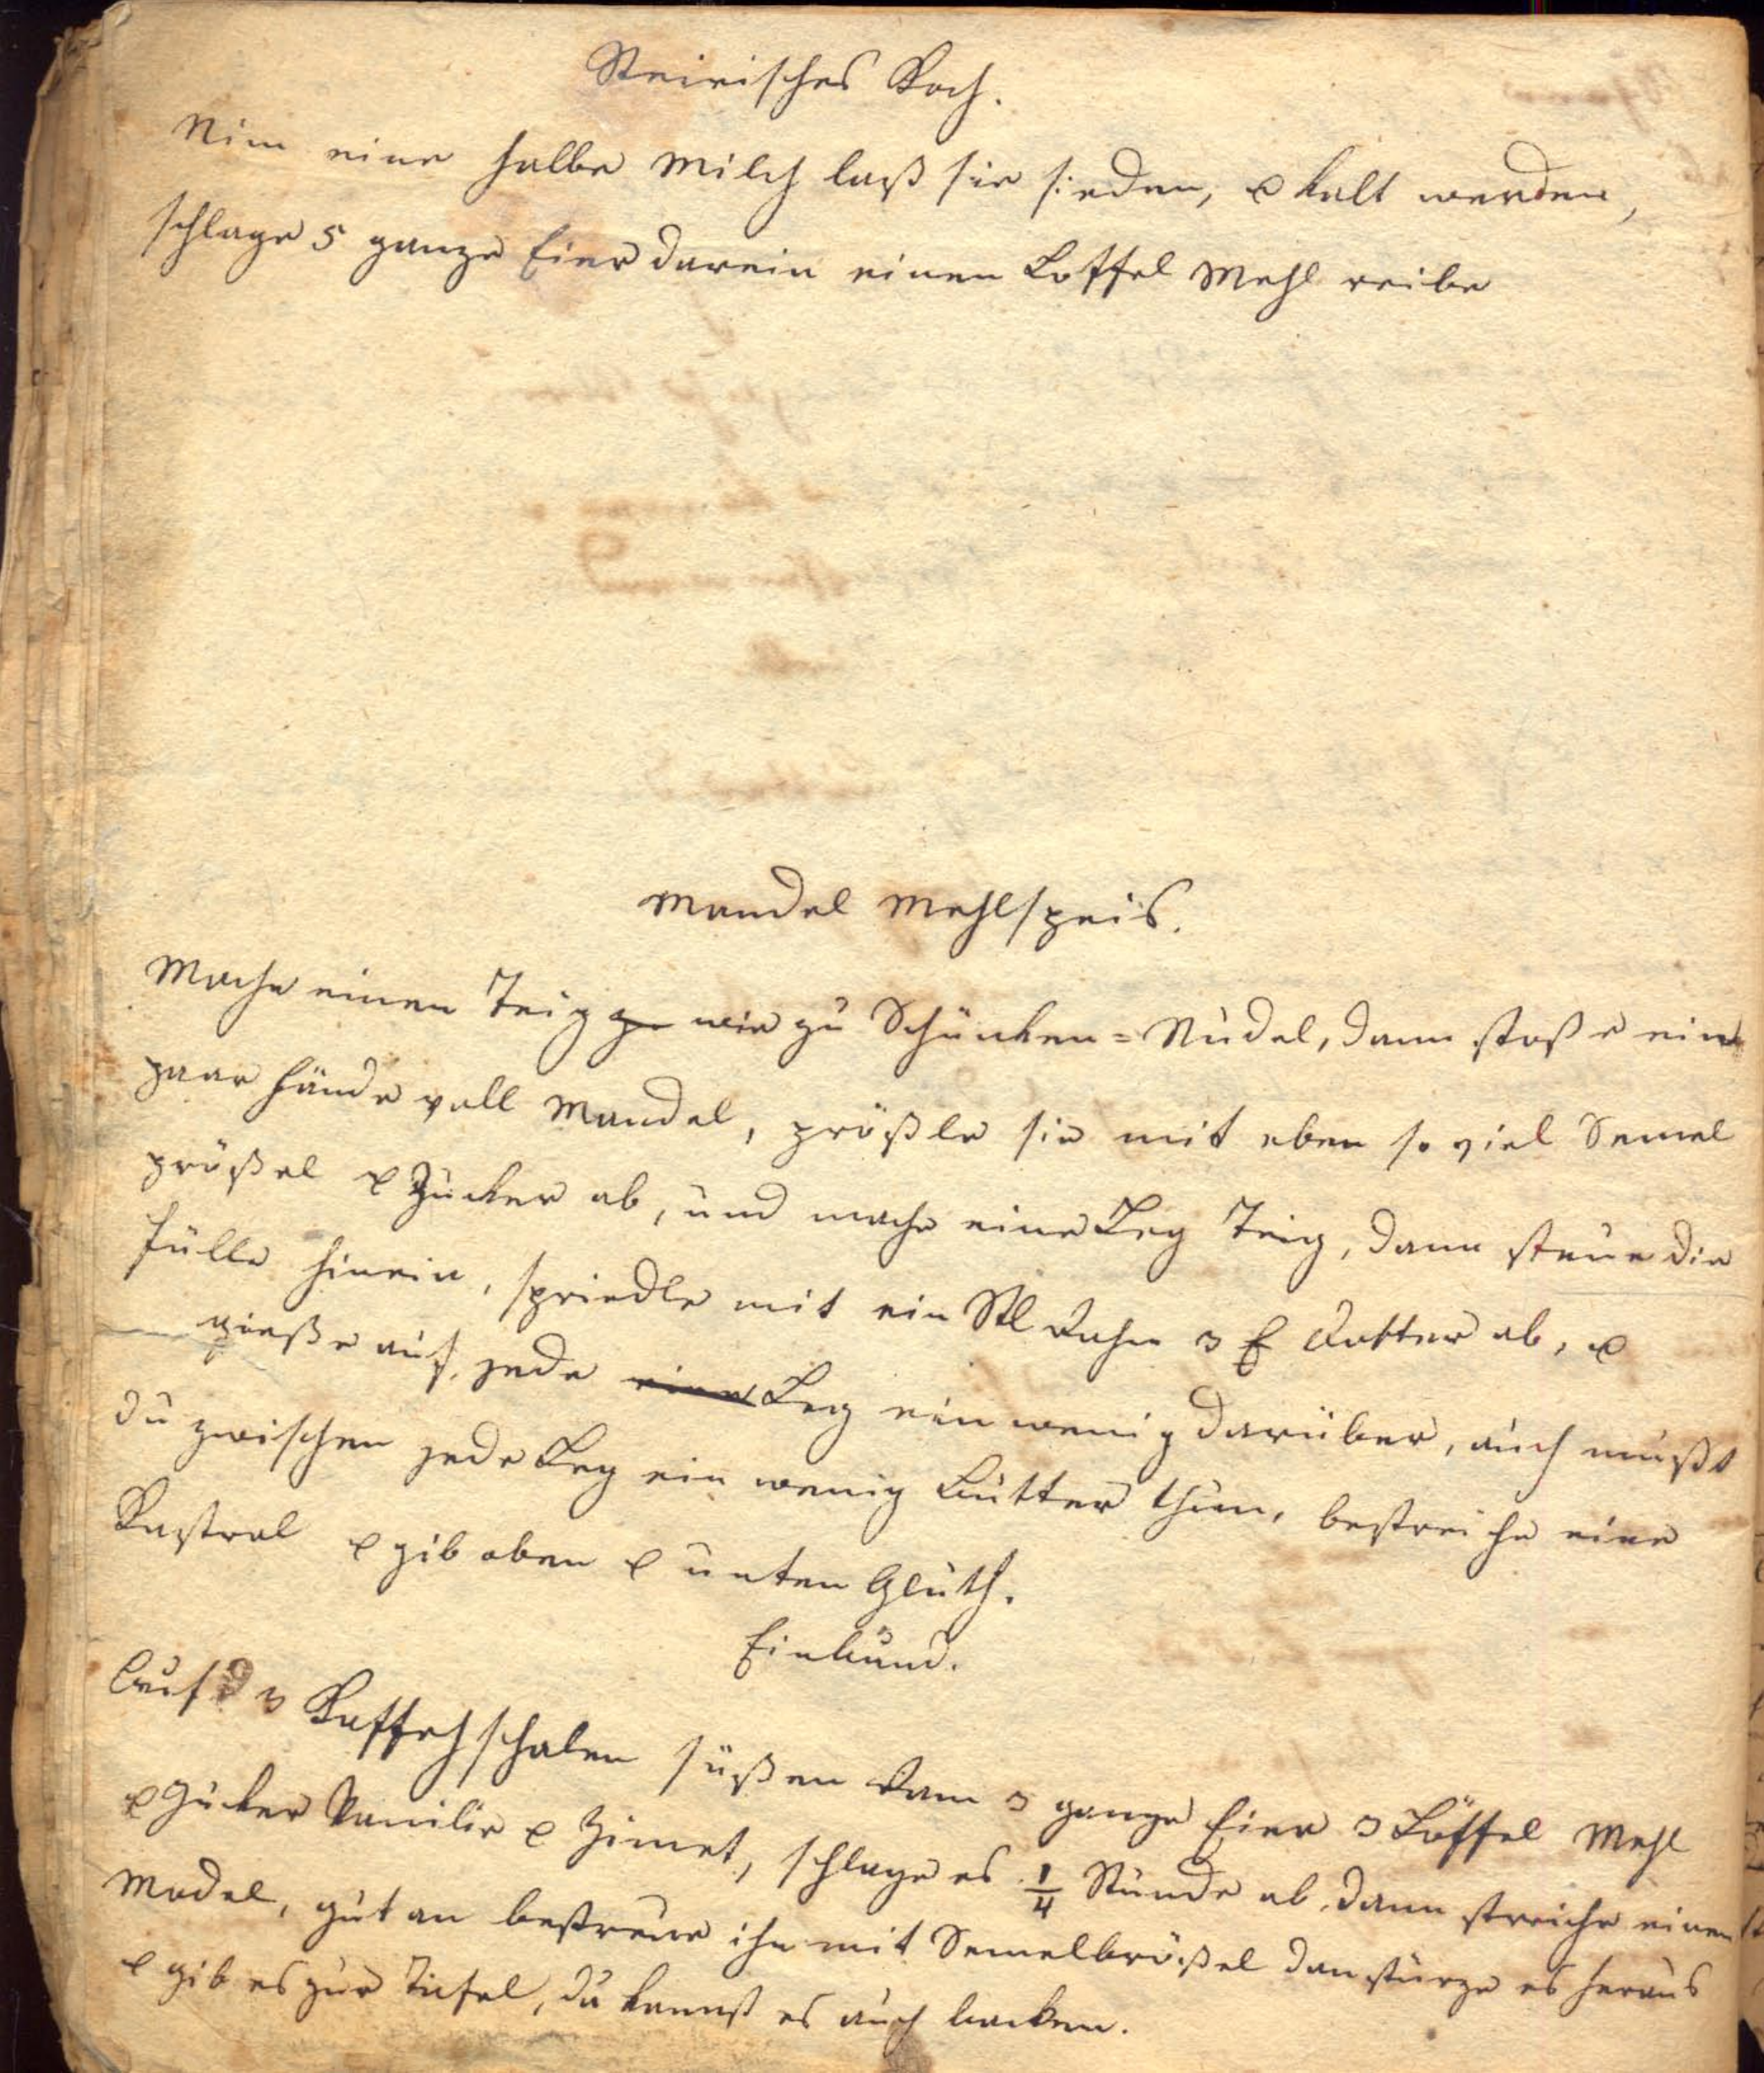 Steirisches Koch.
Nim eine halbe Milch laß sie sieden, & kalt werden,
schlage 5 ganze Eier darein einen Loffel Mehl reibe
Mandel Mehlspeis.
Mache einen Teig zu wie zu Schünken=Nudel, dann stoße ein
paar Hände voll Mandel, prößle sie mit eben so viel Semel
prößel & Zucker ab, und mache eine Leg Teig, dann streue die
Fülle hinein, spriedle mit ein Stl Rahm 3 E Dotter ab, &
gieße auf jede eine Leg ein wenig darüber, auch mußt
du zwischen jede Leg ein wenig Butter thun, bestreiche eine
Kastrol & gib oben & unten Gluth.
Einkund.
Auf 3 Kaffehschalen süßen Ram 3 ganze Eier 3 Löffel Mehl
& Zucker Vanilie & Zimet, schlage es 1/4 Stunde ab, dann streiche einen
Model, gut an bestreue ihn mit Semelbrößel dan stürze es heraus
& gib es zur Tafel, du kannst es auch backen.